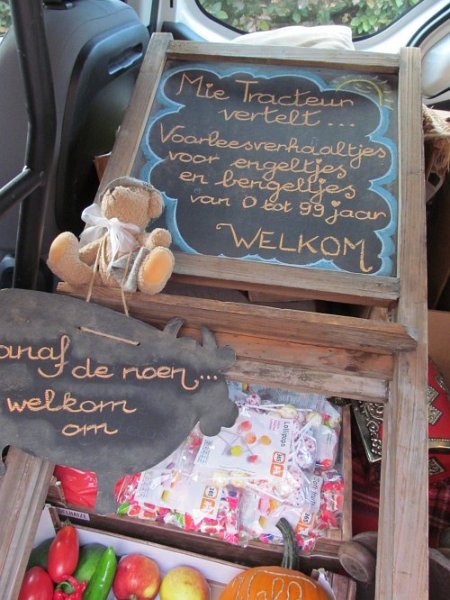 Mie Tracteur
vertelt...
Voorleesverhaaltjes
voor engeltjes
en bengeltjes
van 0 tot 99 jaar
WELKOM
anaf de noen...
welkom
om
Lollipops